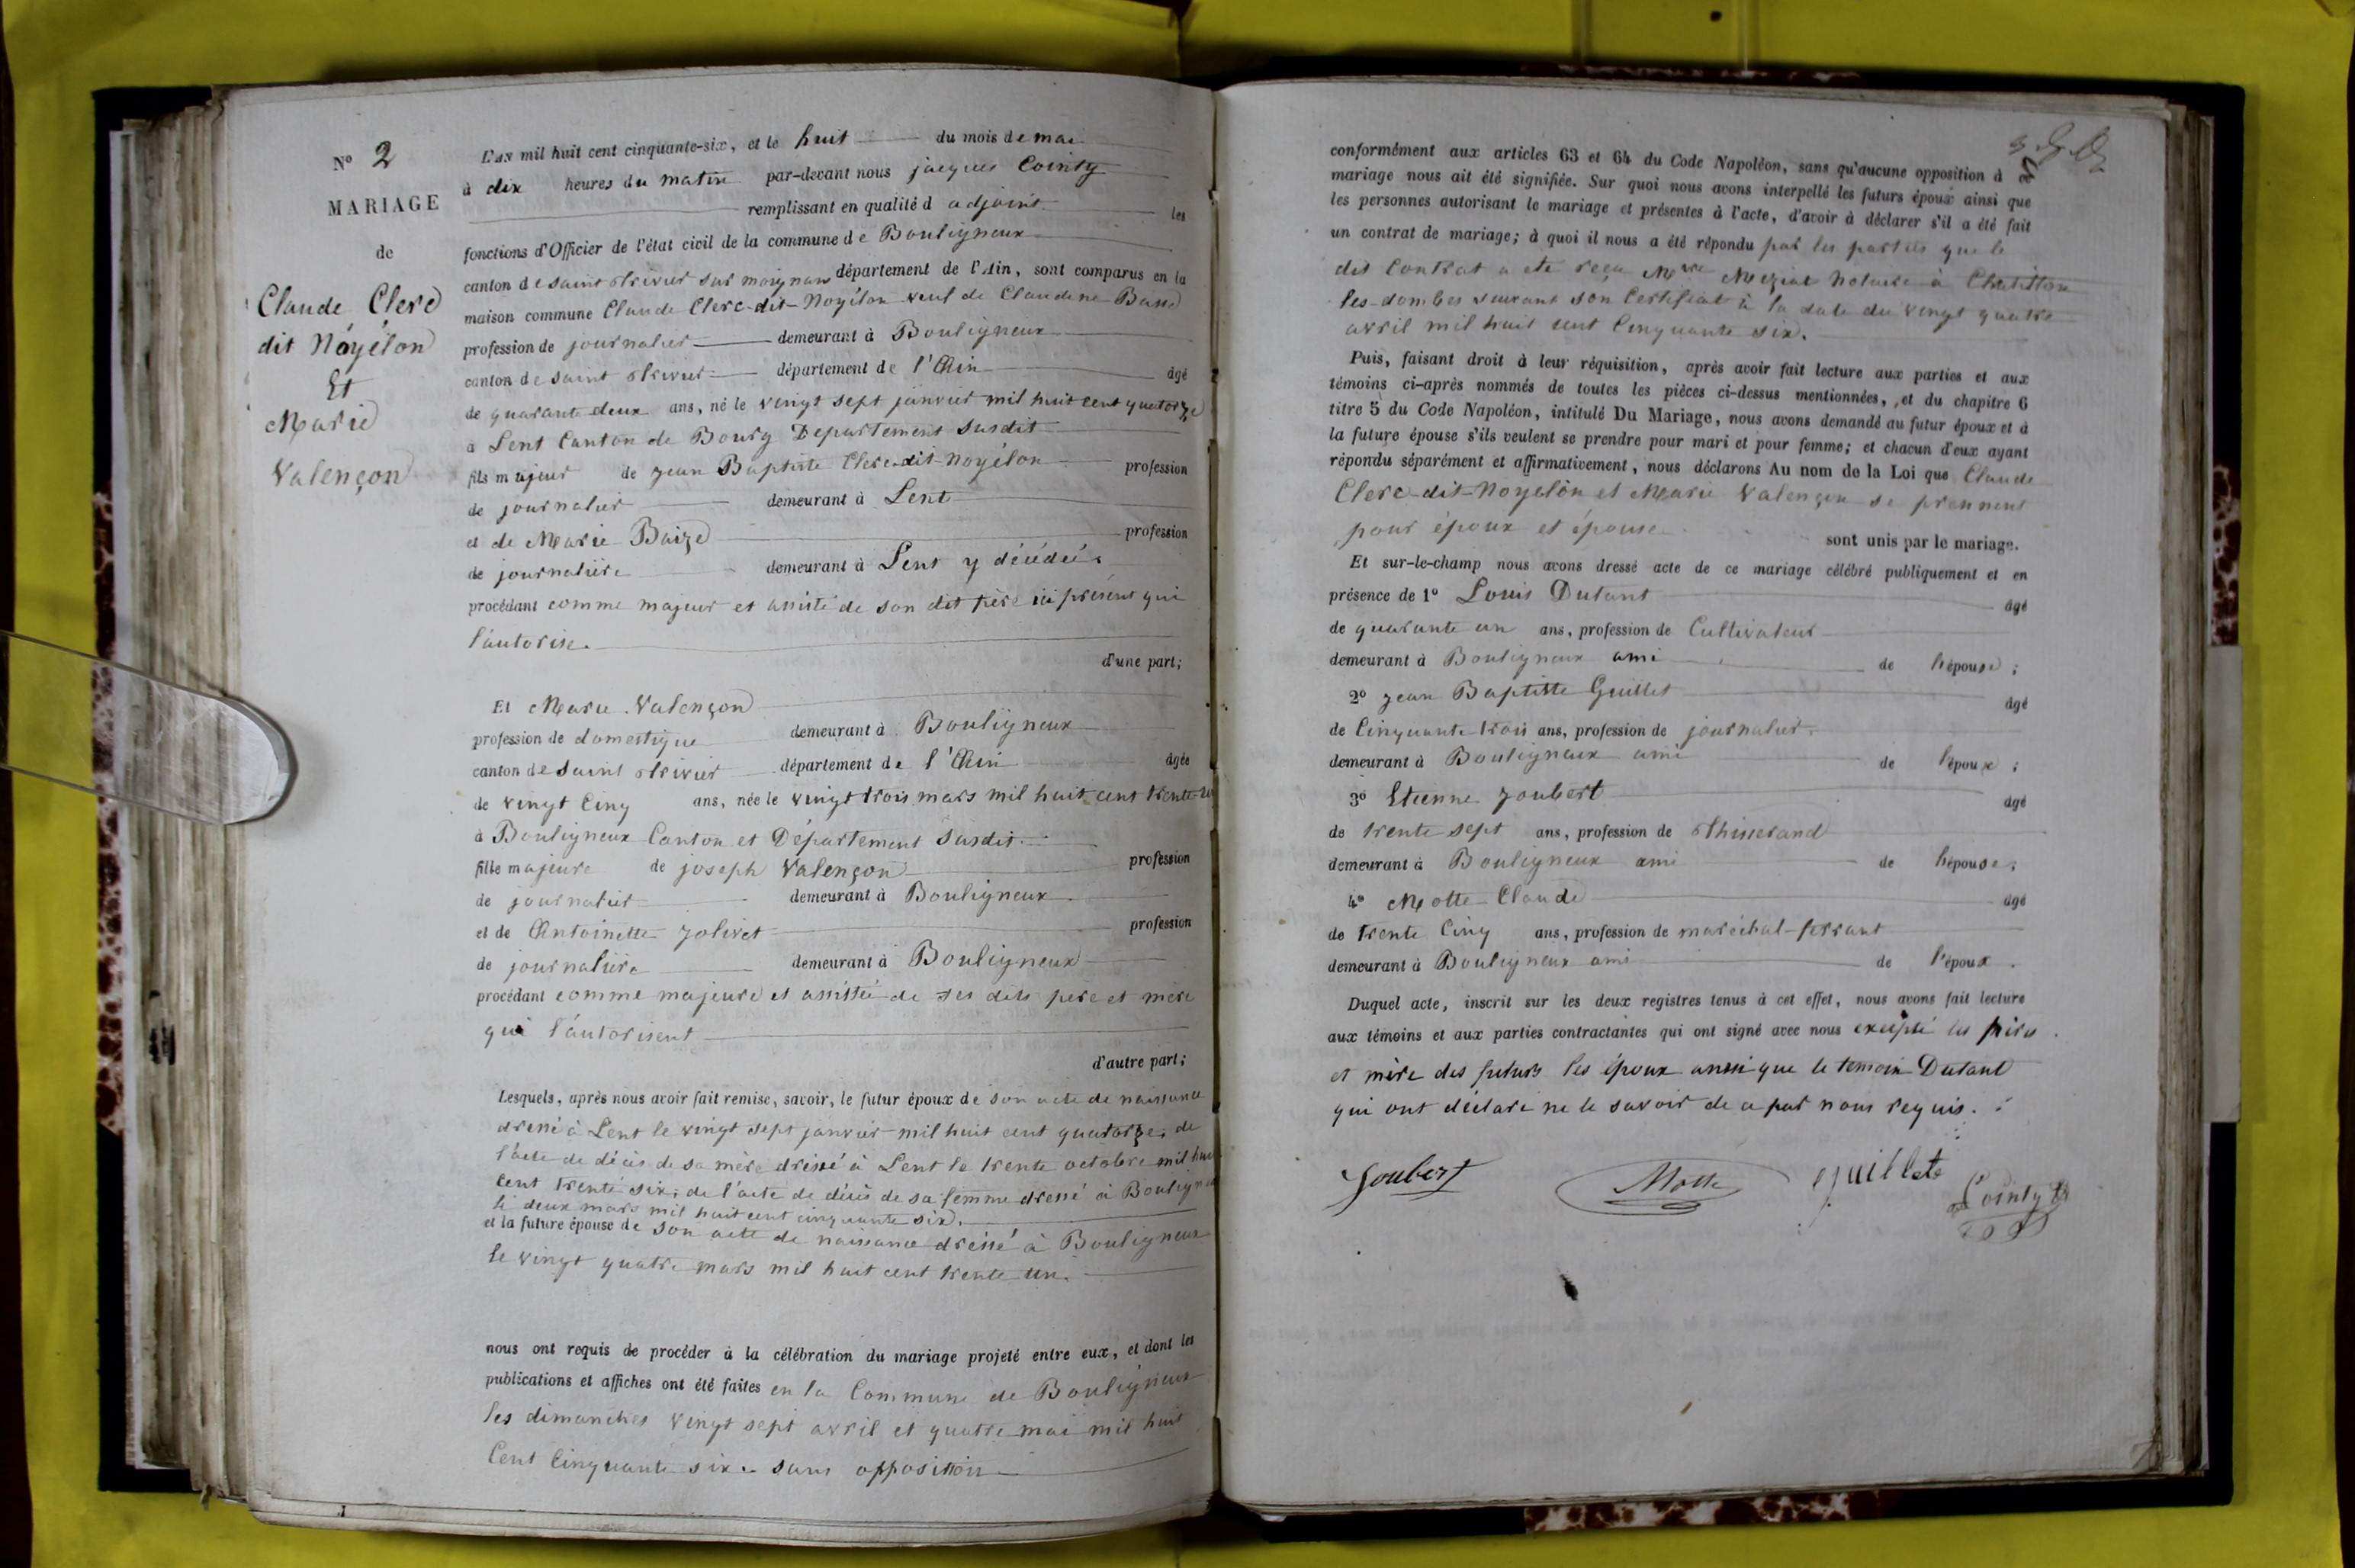 N° 2
MARIAGE
de
Claude Clerc
dit Noyélon
Et
Marie
Valençon
L'an mil huit cent cinquante-six, et le huit du mois de mai
à dix heures du matin par-devant nous jacques Cointy
remplissant en qualité d adjoint les
fonctions d'Officier de l'état civil de la commune de Bouligneux
canton de saint trivier sur moignans département de l'Ain, sont comparus en la
maison commune Claude Clerc-dit-Noyélon veuf de Claudine
profession de journalier demeurant à Bouligneux
canton de saint trivier département de l'Ain âgé
de quarante deux ans, né le vingt sept janvier mil huit cent quatorze
à Lent Canton de Bourg Département susdit
fils majeur de jean Baptiste Clerc-dit-Noyélon profession
de journalier demeurant à Lent
et de Marie Baize profession
de journalière demeurant à Lent y décédée
procédant comme majeur et assisté de son dit père ici présent qui
l'autorise.
d'une part;
Et Marie Valençon
profession de domestique demeurant à Bouligneux
canton de saint trivier département de l'Ain âgée
de vingt cinq ans, née le vingt trois mars mil huit cent trente un
à Bouligneux Canton et Département susdit
fille majeure de joseph Valençon profession
de journalier demeurant à Bouligneux
et de Antoinette jolivet profession
de journalière demeurant à Bouligneux
procédant comme majeure et assistée de ses dits père et mère
qui l'autorisent
d'autre part;
Lesquels, après nous avoir fait remise, savoir, le futur époux de son acte de naissance
dressé à Lent le vingt sept janvier mil huit cent quatorze, de
l'acte de décès de sa mère dressé à Lent le trente octobre mil huit
cent trente six, de l'acte de décès de sa femme dressé à Bouligneux
le deux mars mil huit cent cinquante six.
et la future épouse de son acte de naissance dressé à Bouligneux
le vingt quatre mars mil huit cent trente un.
nous ont requis de procéder à la célébration du mariage projeté entre eux, et dont les
publications et affiches ont été faites en la Commune de Bouligneux
les dimanches vingt sept avril et quatre mai mil huit
cent cinquante six. sans opposition
conformément aux articles 63 et 64 du Code Napoléon, sans qu'aucune opposition à ce
mariage nous ait été signifiée. Sur quoi nous avons interpellé les futurs époux ainsi que
les personnes autorisant le mariage et présentes à l'acte, d'avoir à déclarer s'il a été fait
un contrat de mariage; à quoi il nous a été répondu par les parties que le
dit Contrat a été reçu Mtre Meziat Notaire à Chatillon
les-dombes suivant son Certificat à la date du vingt quatre
avril mil huit cent cinquante six.
Puis, faisant droit à leur réquisition, après avoir fait lecture aux parties et aux
témoins ci-après nommés de toutes les pièces ci-dessus mentionnées, et du chapitre 6
titre 5 du Code Napoléon, intitulé Du Mariage, nous avons demandé au futur époux et à
la future épouse s'ils veulent se prendre pour mari et pour femme; et chacun d'eux ayant
répondu séparément et affirmativement, nous déclarons Au nom de la Loi que Claude
Clerc-dit-Noyelon et Marie Valençon se prennent
pour époux et épouse
sont unis par le mariage.
Et sur-le-champ nous avons dressé acte de ce mariage célébré publiquement et en
présence de 1° Louis Dutant âgé
de quarante un ans, profession de Cultivateur
demeurant à Bouligneux ami de l'épouse;
2° jean Baptiste Guillet âgé
de Cinquante trois ans, profession de journalier
demeurant à Bouligneux ami de l'époux;
3° Etienne joubert âgé
de trente sept ans, profession de Thisserand
demeurant à Bouligneux ami de l'épouse;
4° Motte Claude âgé
de trente Cinq ans, profession de maréchal-ferrant
demeurant à Bouligneux ami de l'époux.
Duquel acte, inscrit sur les deux registres tenus à cet effet, nous avons fait lecture
aux témoins et aux parties contractantes qui ont signé avec nous excepté les pères
et mère des futurs les époux aussi que le temoin Dutant
qui ont déclaré ne le savoir de ce par nous requis.
Joubert
Motte
guillete
Cointy